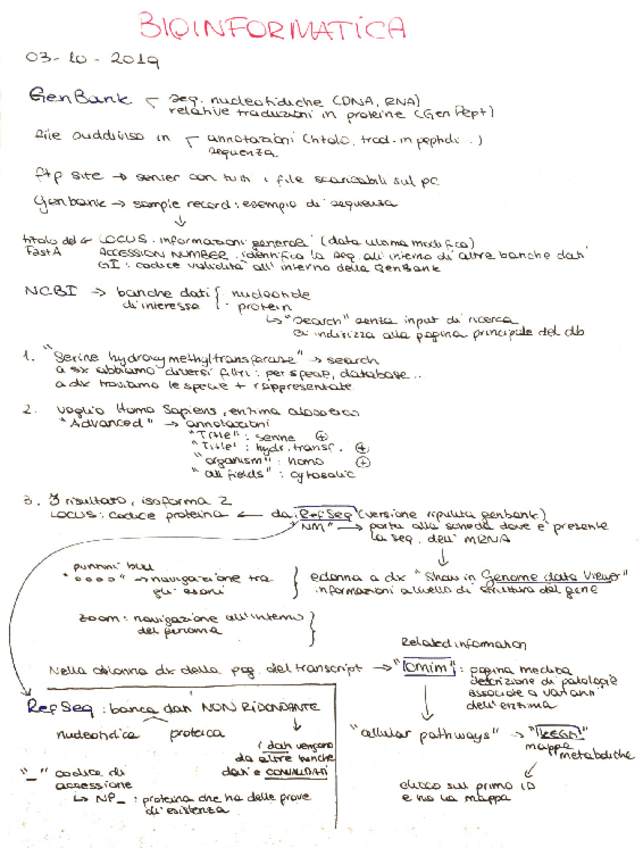 BIOINFORMATICA
03-10-2019
GenBank seq. nucleotidiche (DNA, RNA)
relative traduzioni in proteine (GenPept)
file suddiviso in annotazioni (titolo, trad. in peptidi..)
sequenza
ftp site → server con tutti i file scaricabili sul pc
Genbank → sample record: esempio di sequenza
titolo del ← LOCUS. informazioni generali (data ultima modifica)
FastA ACCESSION NUMBER. identifica la seq. all'interno di altre banche dati
GI: codice validità all'interno della GenBank
NCBI → banche dati { nucleotide
di interesse protein
↳ "search" senza input di ricerca
ci indirizza alla pagina principale del db
1. "Serine hydroxymethyltransferase" → search
a sx abbiamo diversi filtri: per specie, database..
a dx troviamo le specie + rappresentate
2. voglio Homo Sapiens, enzima
"Advanced" → annotazioni
"Title": serine +
"Title": hydr. transf. +
"organism": homo +
"all fields": cytosolic
3. 3 risultato, isoforma 2
LOCUS: codice proteina ← da RefSeq (versione ripulita genbank)
"NM" → porta alla scheda dove è presente
la seq. dell' mRNA
puntini blu
"oooo" → navigazione tra
gli esoni
colonna a dx "Show in Genome data Viewer"
informazioni a livello di struttura del gene
zoom: navigazione all'interno
del genoma
Related information
Nella colonna dx della pag. del transcript → "omim": pagina medica
descrizione di patologie
associate a varianti
dell'enzima
RefSeq: banca dati NON RIDONDANTE
nucleotidica proteica
i dati vengono
da altre banche
dati e CONVALIDATI
"_" codice di
accessione
↳ NP_: proteina che ha delle prove
di esistenza
"cellular pathways" → "KEGG"
mappe
metaboliche
clicco sul primo ID
e ho la mappa